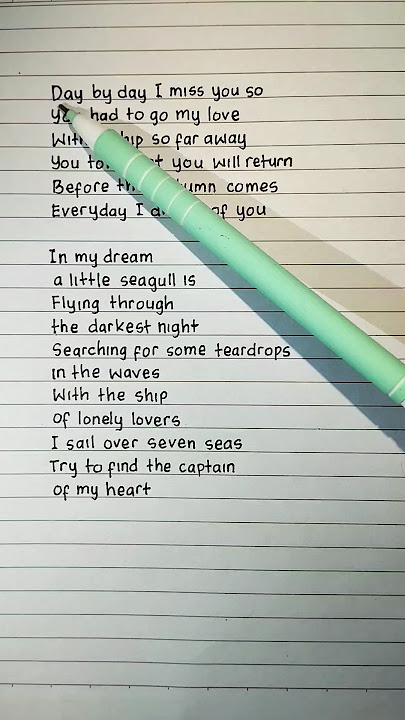 Day by day I miss you so
had to go my love
so far away
You you will return
Before comes
Everyday I of you
In my dream
a little seagull is
Flying through
the darkest night
Searching for some teardrops
in the waves
With the ship
of lonely lovers
I sail over seven seas
Try to find the captain
of my heart